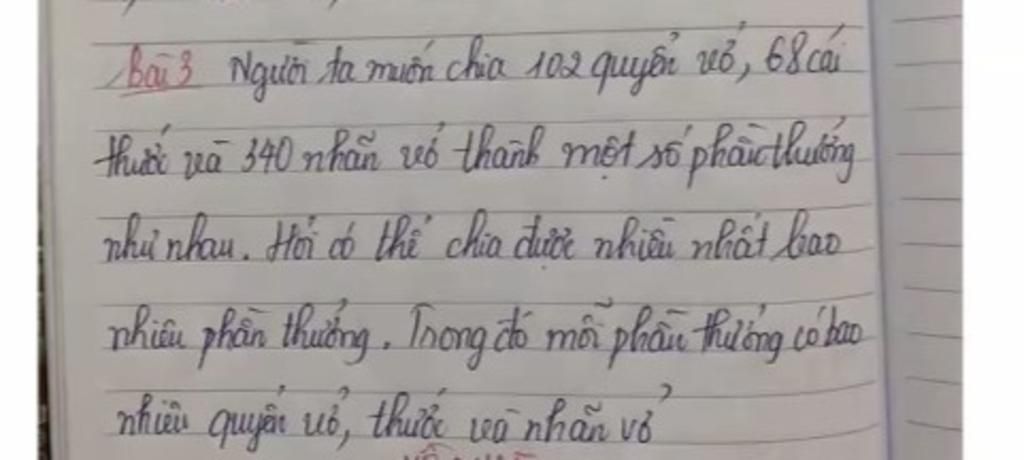 Bài 3 Người ta muốn chia 102 quyển vở, 68 cái
thước và 340 nhãn vở thành một số phần thưởng
như nhau. Hỏi có thể chia được nhiều nhất bao
nhiêu phần thưởng. Trong đó mỗi phần thưởng có bao
nhiêu quyển vở, thước và nhãn vở?